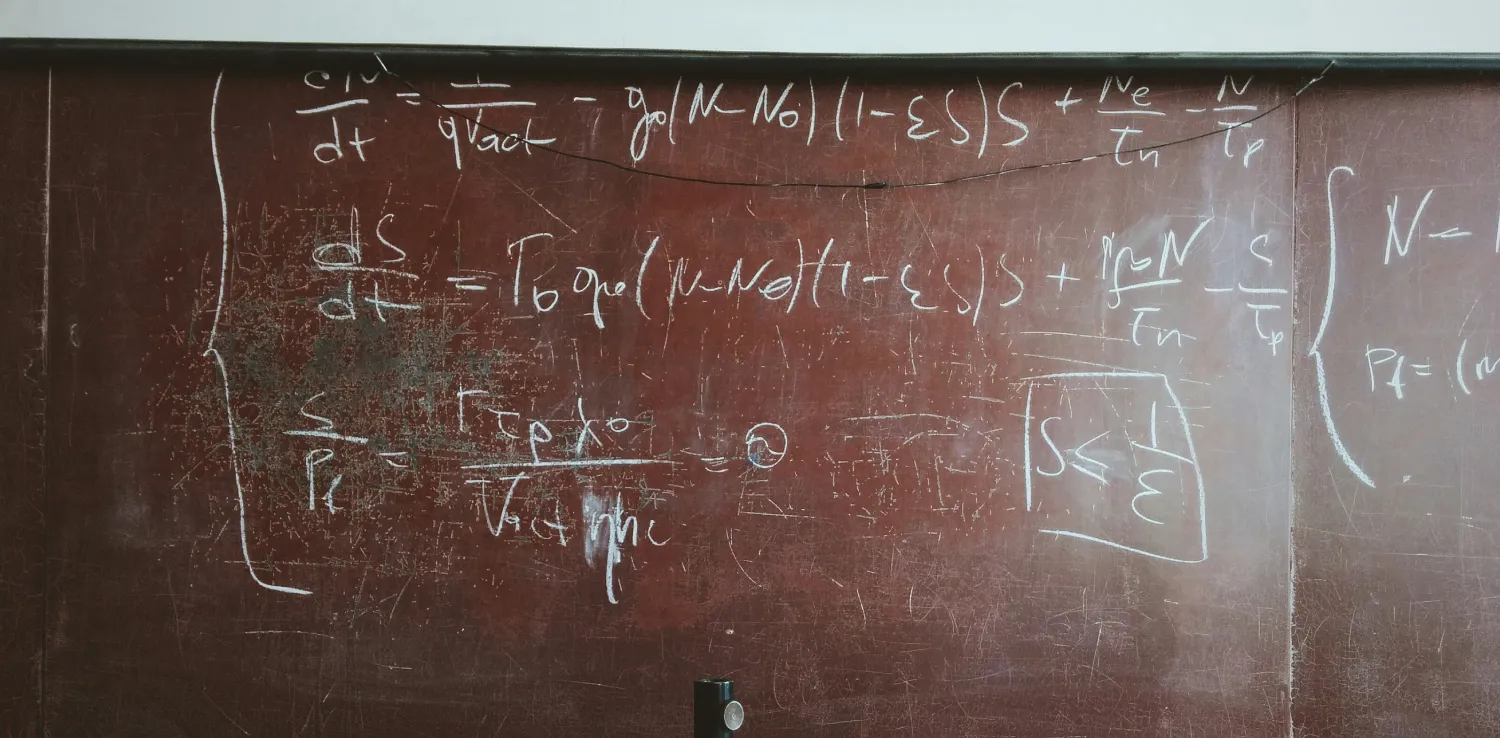 dN/dt = I/qVact - go(N-No)(1-εS)S + Ne/τn - N/τp
dS/dt = Γo go(N-No)(1-εS)S + N/τn - S/τp
S/Pf = Γτp λo/Vact ηhc =
S ≤ 1/ε
N -
Pf = (